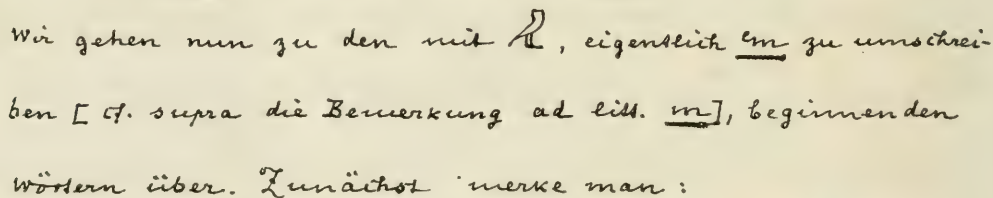 Wir gehen nun zu den mit 𓅓, eigentlich em zu umschrei-
ben [cf. supra die Bemerkung ad litt. m], beginnenden
Wörtern über. Zunächst merke man: